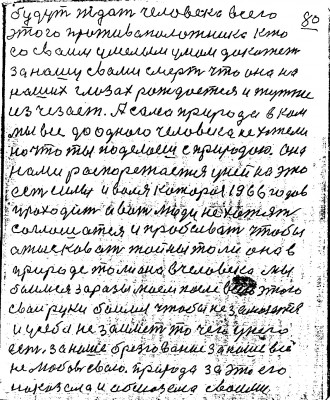 80
будут ждат человека всего
этого противоположника кто
со своим умелым умом докажет
за нашу свами смерт что она на
наших глазах рождается и тутже
изчезает. А сама природа в ком
мы все до одного человека не хотели
но что ты поделаеш с природою. Она
нами распоряжается у ней на это
ест силы и воля которая 1966 годов
проходит а вот люди не хотят
согласится и пробоват чтобы
отисковат тайны то ли она в
природе то ли она в человека. мы
боимся заразы моем после этого
свои руки боимся чтобы не
и у себя не займет то чего у него
ест. за наше брезгование за наше всё
не любов свою. природа за это его
наказала и своими